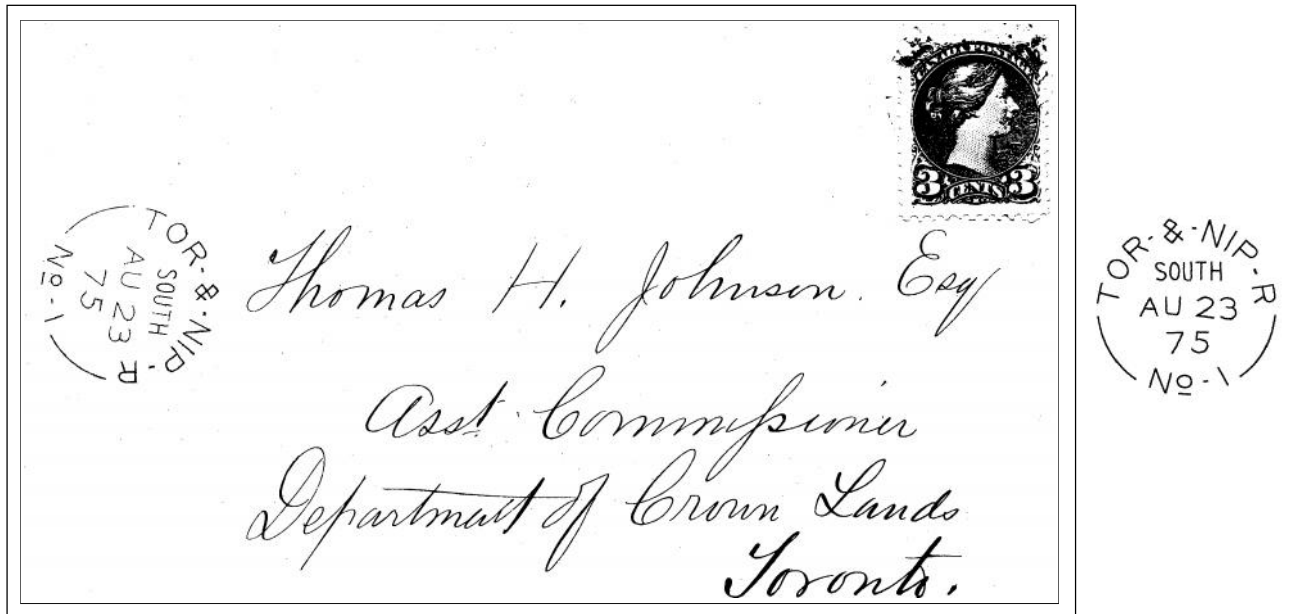 CANADA POSTAGE
3 CENTS 3
TOR-&-NIP-R
SOUTH
AU 23
75
No-1
Thomas H. Johnson. Esq
Asst. Commissioner
Department of Crown Lands
Toronto.
TOR-&-NIP-R
SOUTH
AU 23
75
No-1